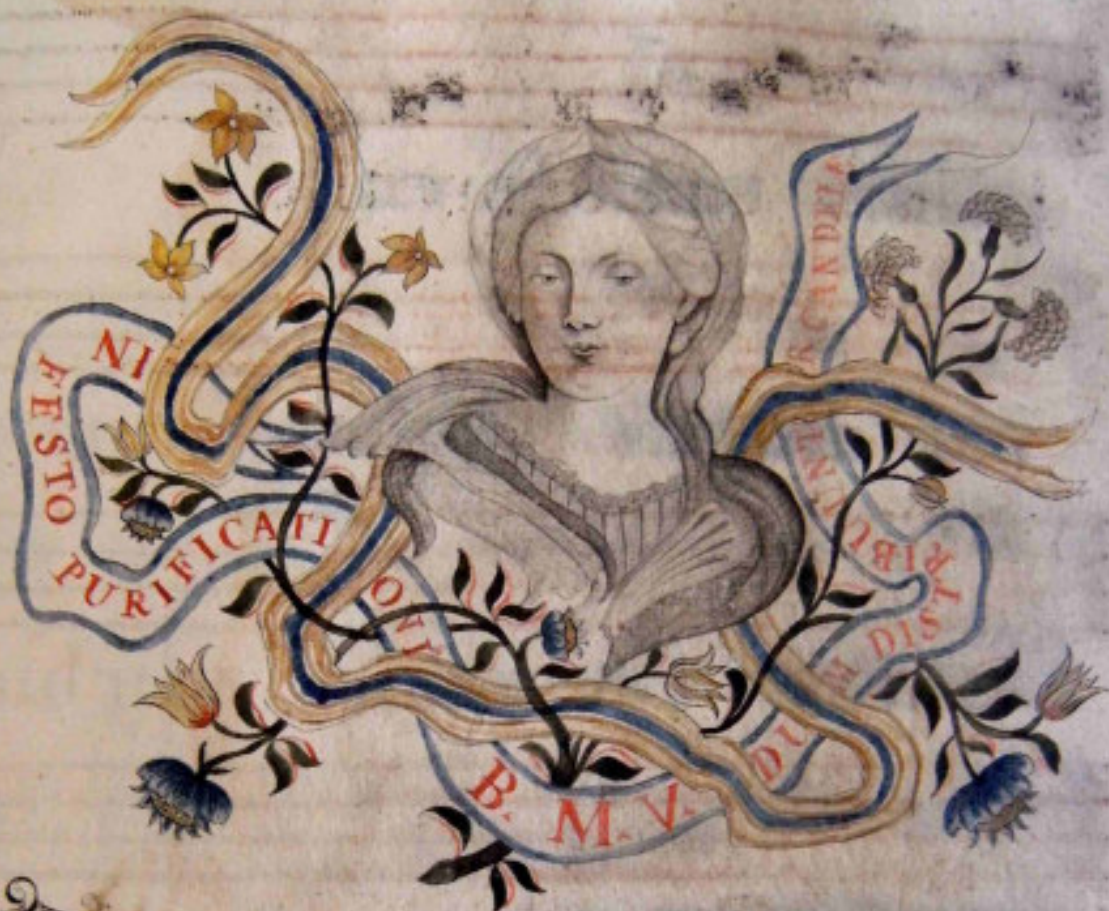 IN FESTO PURIFICATIONI
B. M. V.
DUM DISTRIBUUNTUR CANDELÆ